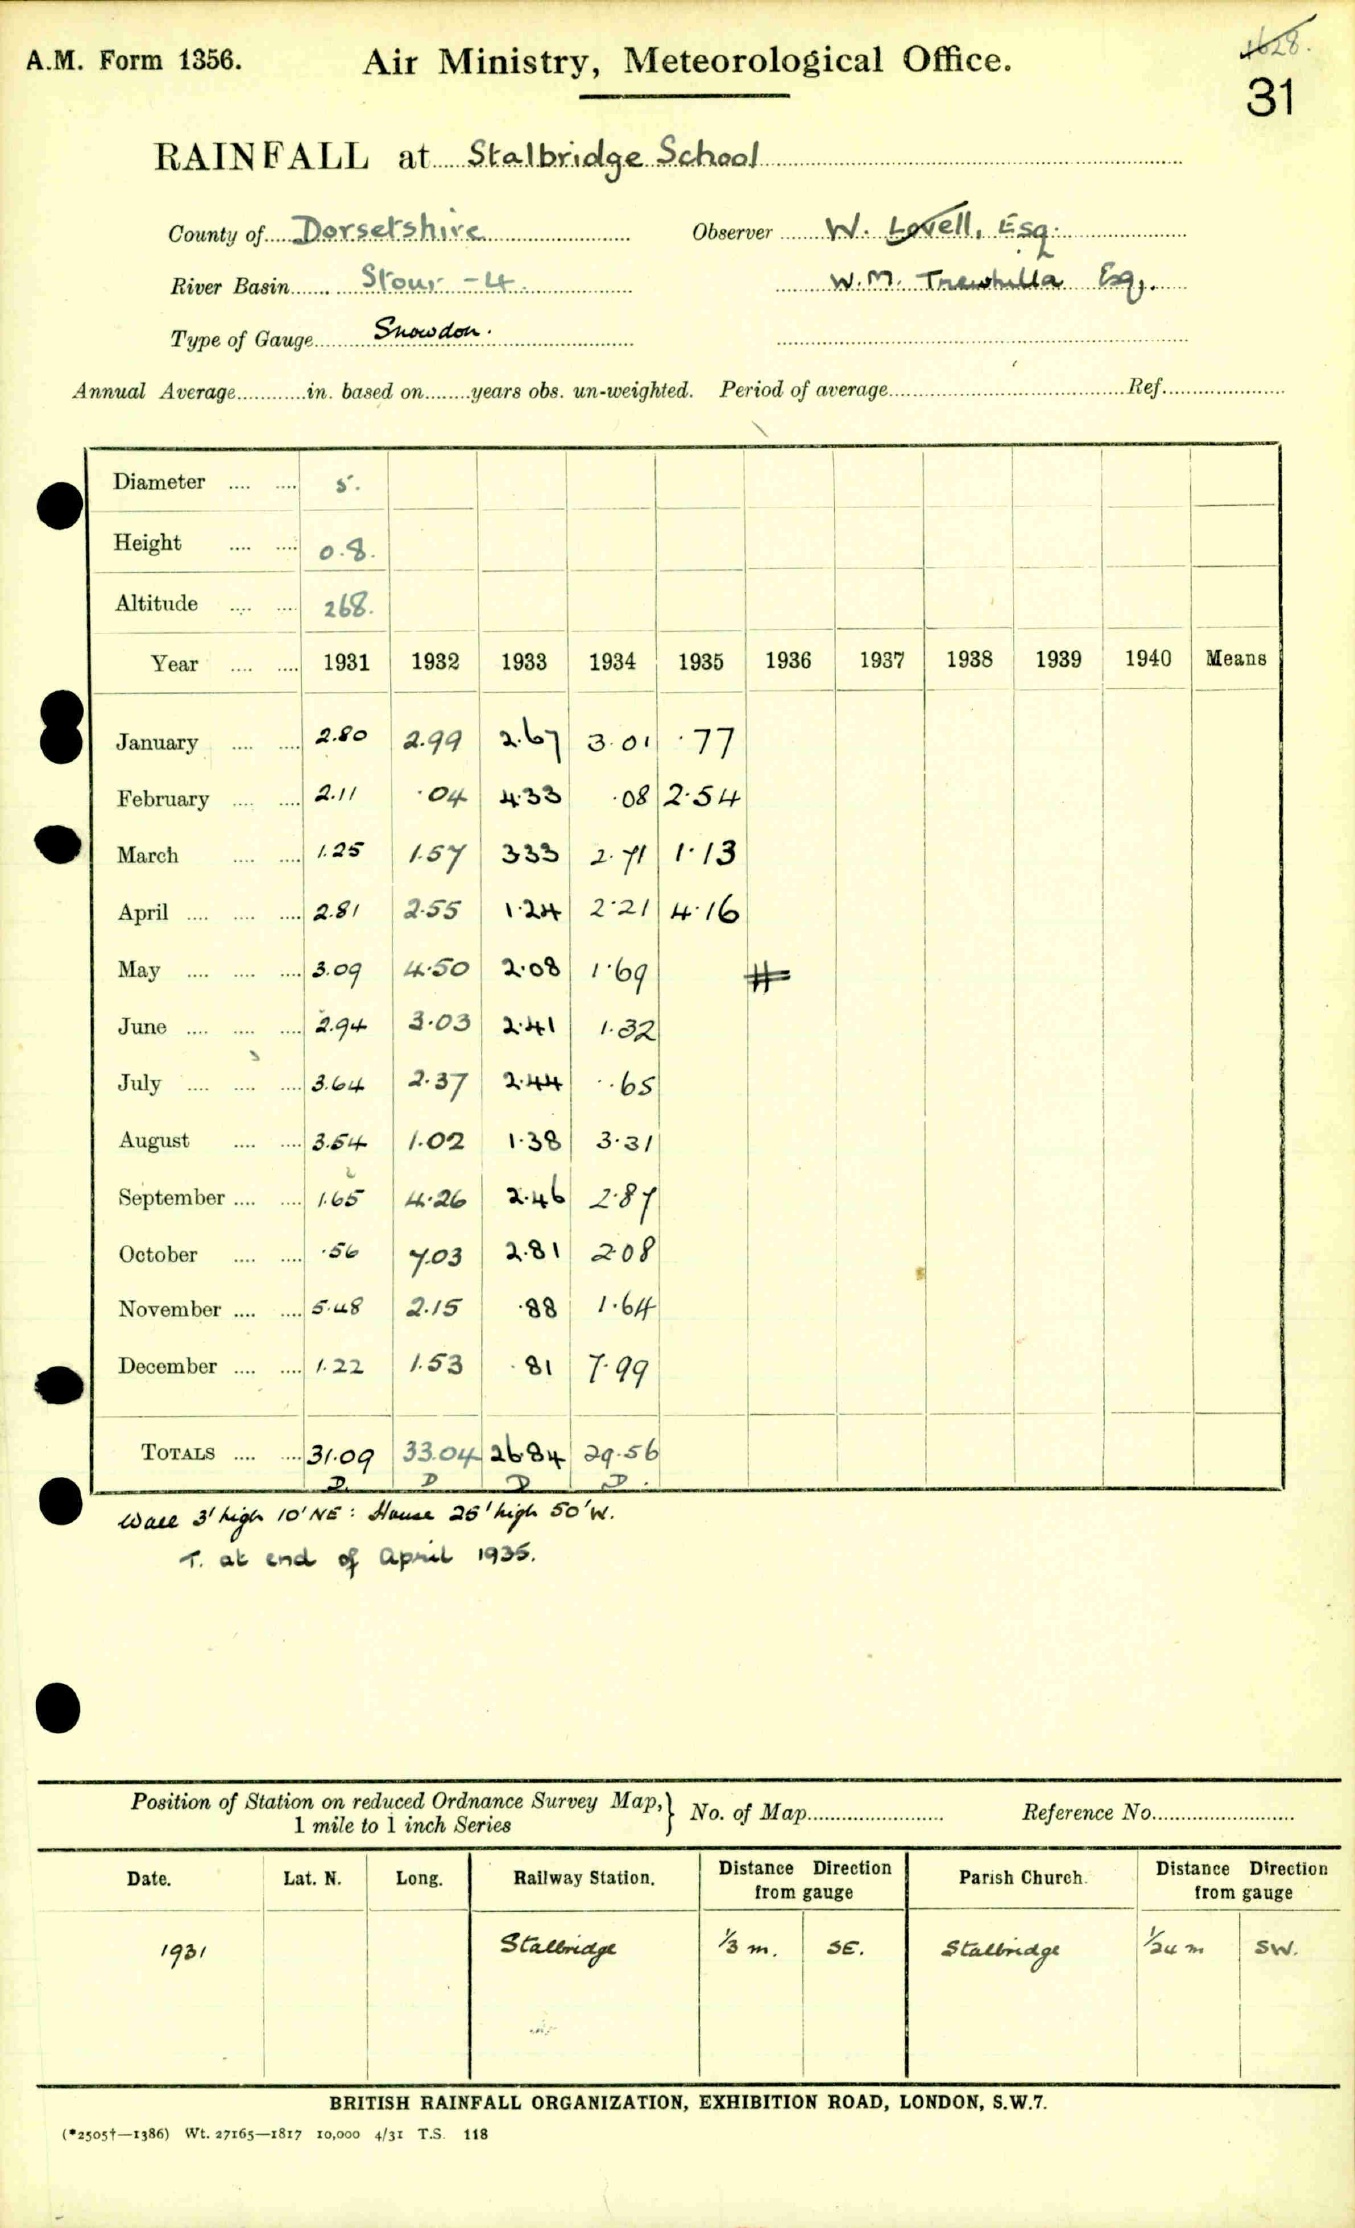 1628.
A.M. Form 1356.
Air Ministry, Meteorological Office.
31
RAINFALL at Stalbridge School
County of Dorsetshire Observer W. Lovell, Esq.
River Basin Stour - 4. W.M. Trewhella Esq.
Type of Gauge Snowdon.
Annual Average............in. based on........years obs. un-weighted. Period of average........................................Ref.....................
Diameter .... .... 5.
Height .... .... 0.8.
Altitude .... .... 268.
Year .... .... 1931 1932 1933 1934 1935 1936 1937 1938 1939 1940 Means
January .... .... 2.80 2.99 2.67 3.01 .77
February .... .... 2.11 .04 4.33 .08 2.54
March .... .... 1.25 1.57 3.33 2.71 1.13
April .... .... .... 2.81 2.55 1.24 2.21 4.16
May .... .... .... 3.09 4.50 2.08 1.69
June .... .... .... 2.94 3.03 2.41 1.32
July .... .... .... 3.64 2.37 2.44 .65
August .... .... 3.54 1.02 1.38 3.31
September .... .... 1.65 4.26 2.46 2.87
October .... .... .56 7.03 2.81 2.08
November .... .... 5.48 2.15 .88 1.64
December .... .... 1.22 1.53 .81 7.99
TOTALS .... .... 31.09 33.04 26.84 29.56
D. D D D.
Wall 3' high 10' NE : House 25' high 50' W.
T. at end of April 1935.
Position of Station on reduced Ordnance Survey Map, } No. of Map........................ Reference No.........................
1 mile to 1 inch Series
Date. Lat. N. Long. Railway Station. Distance Direction from gauge Parish Church. Distance Direction from gauge
1931 Stalbridge 1/3 m. SE. Stalbridge 1/24 m SW.
BRITISH RAINFALL ORGANIZATION, EXHIBITION ROAD, LONDON, S.W.7.
(*2505†—1386) Wt. 27165—1817 10,000 4/31 T.S. 118